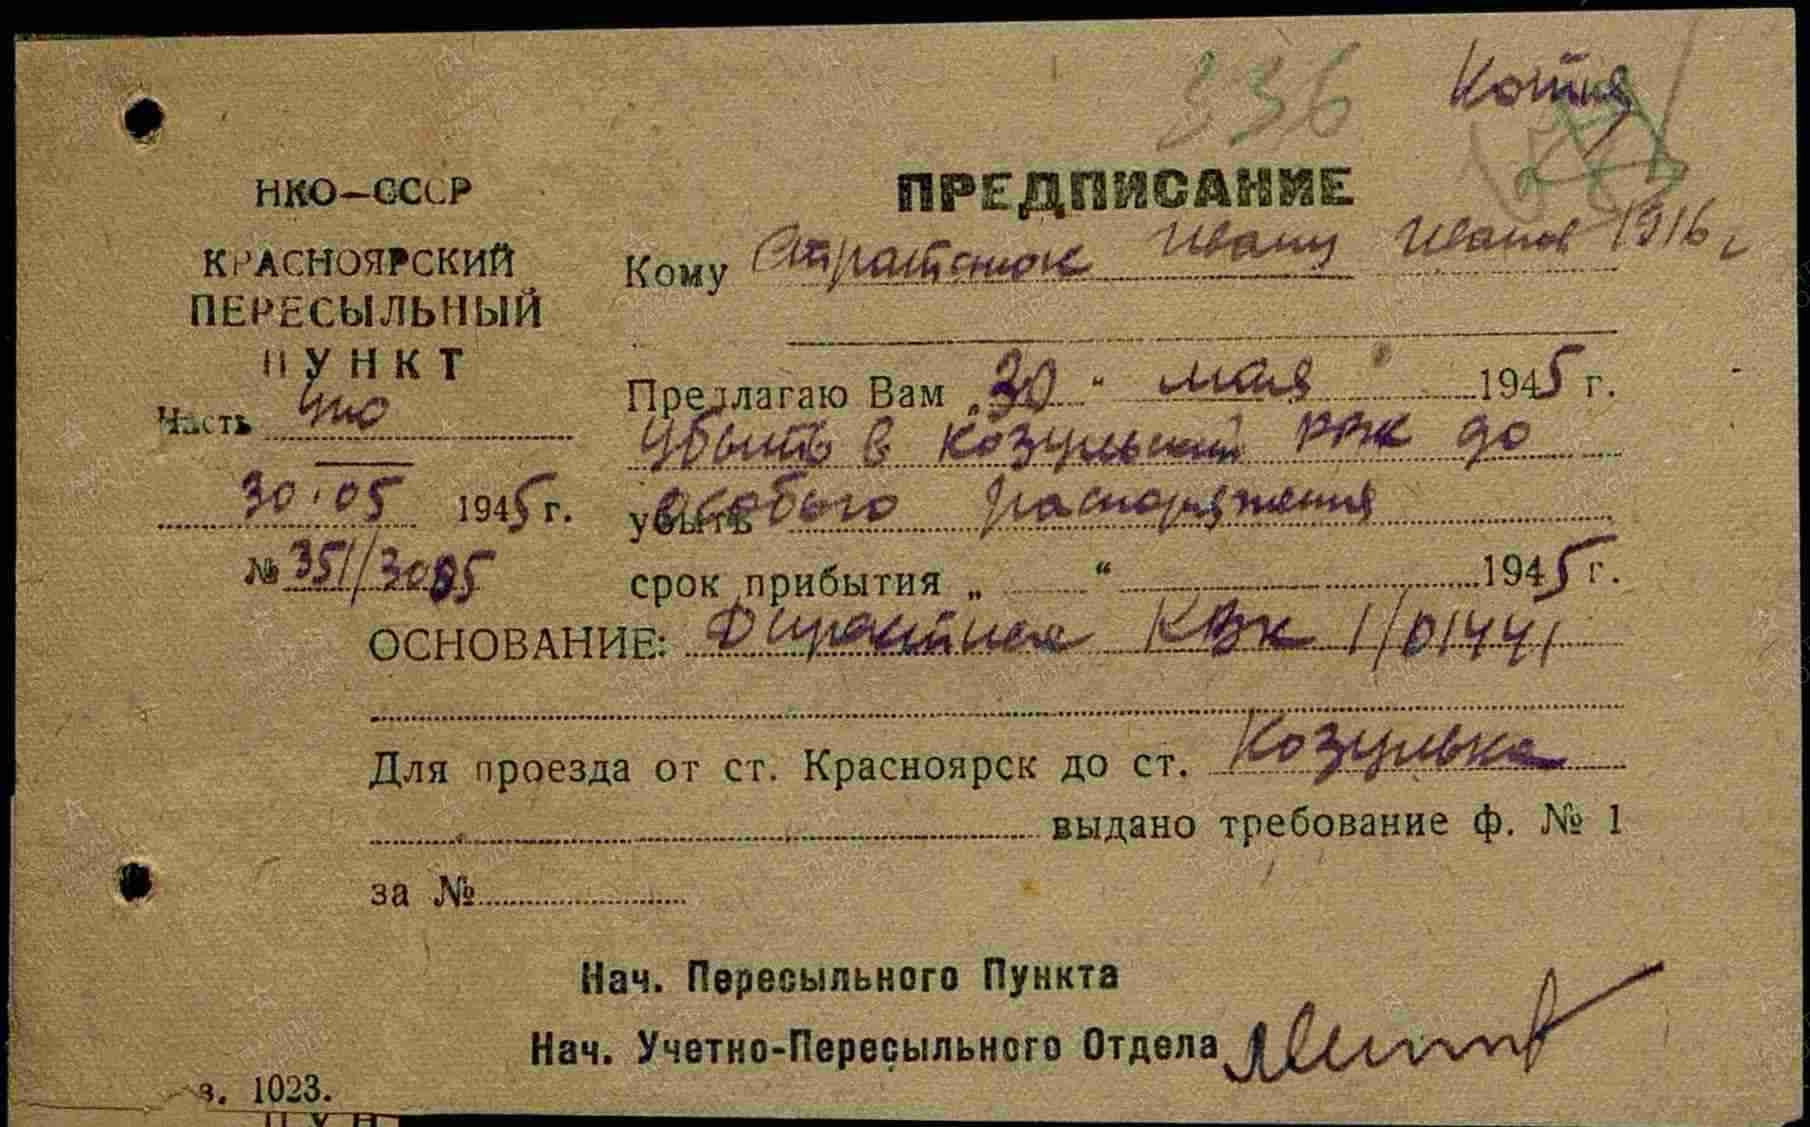 336 Копия
НКО—СССР
КРАСНОЯРСКИЙ
ПЕРЕСЫЛЬНЫЙ
ПУНКТ
Часть упо
30.05 1945 г.
№ 351/3005
ПРЕДПИСАНИЕ
Кому Стратонюк Ивану Иванов 1916 г
Предлагаю Вам „30“ мая 1945 г.
Убыть в Козульский РВК до
убыть особого распоряжения
срок прибытия „ “ 1945 г.
ОСНОВАНИЕ: Директива КВК 1/01441
Для проезда от ст. Красноярск до ст. Козулька
выдано требование ф. № 1
за №
Нач. Пересыльного Пункта
Нач. Учетно-Пересыльного Отдела
з. 1023.